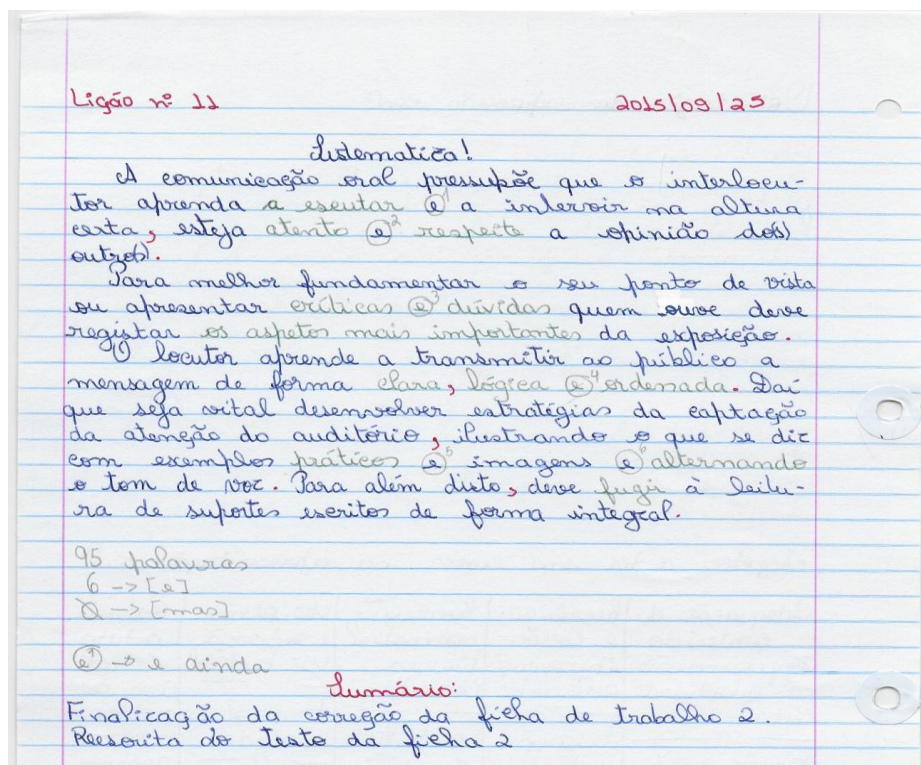 Lição nº 11 2015/09/25
Sistematiza!
A comunicação oral pressupõe que o interlocu-
tor aprenda a escutar e¹ a intervir na altura
certa, esteja atento e² respeite a opinião do(s)
outro(s).
Para melhor fundamentar o seu ponto de vista
ou apresentar críticas e³ dúvidas quem ouve deve
registar os aspetos mais importantes da exposição.
O locutor aprende a transmitir ao público a
mensagem de forma clara, lógica e⁴ ordenada. Daí
que seja vital desenvolver estratégias da captação
da atenção do auditório, ilustrando o que se diz
com exemplos práticos e⁵ imagens e⁶ alternando
o tom de voz. Para além disto, deve fugir à leitu-
ra de suportes escritos de forma integral.
95 palavras
6 -> [e]
0 -> [mas]
e¹ -> e ainda
Sumário:
Finalização da correção da ficha de trabalho 2.
Reescrita do texto da ficha 2